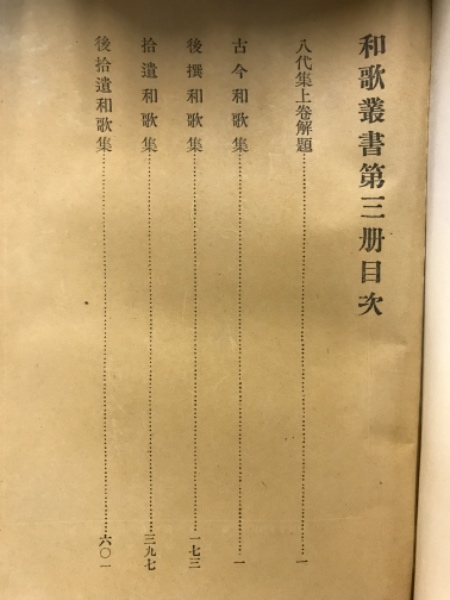 和歌叢書第三册目次
八代集上卷解題……一
古今和歌集……一
後撰和歌集……一七三
拾遺和歌集……三九七
後拾遺和歌集……六〇一